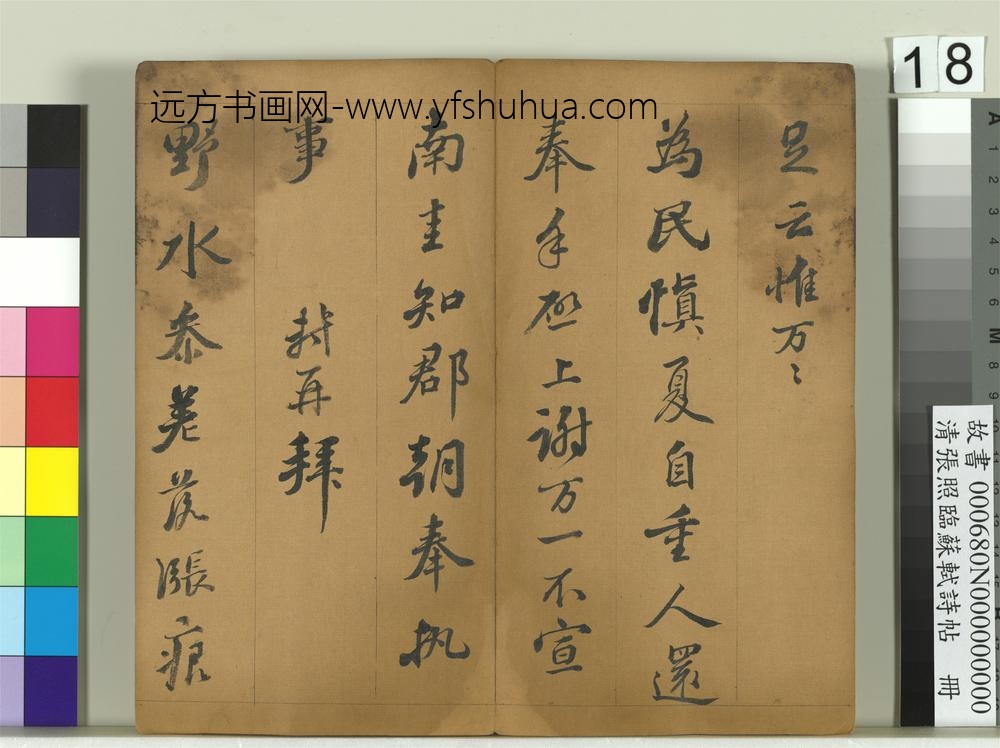 远方书画网-www.yfshuhua.com
足云惟万〻
為民慎夏自重人還
奉手啓上謝万一不宣
南圭知郡朝奉执
事 軾再拜
野水参差落漲痕
18
故書 000680N000000000
清張照臨蘇軾詩帖 冊
A 1 2 3 4 5 6 M 8 9